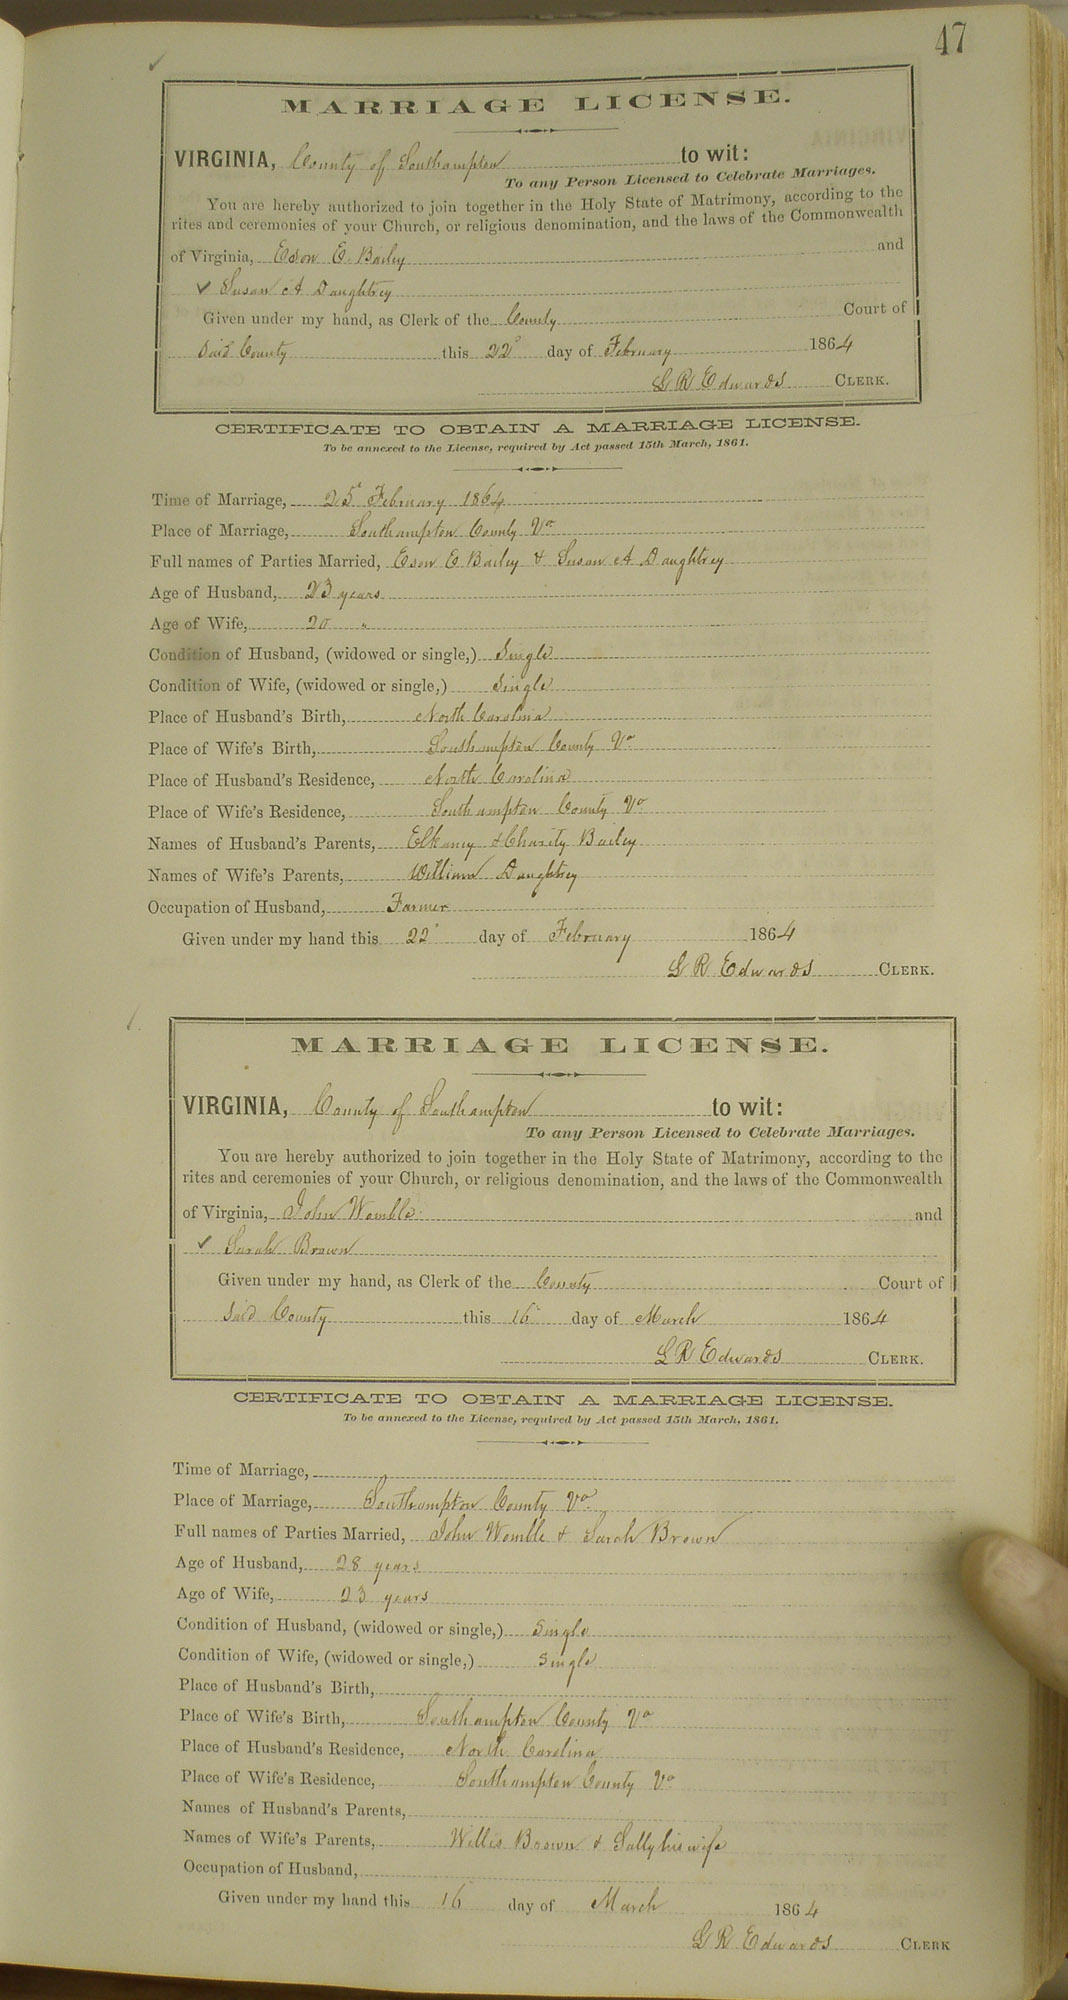 47
MARRIAGE LICENSE.
VIRGINIA, County of Southampton to wit:
To any Person Licensed to Celebrate Marriages.
You are hereby authorized to join together in the Holy State of Matrimony, according to the
rites and ceremonies of your Church, or religious denomination, and the laws of the Commonwealth
of Virginia, Eson E. Bailey and
✓ Susan A Daughtrey
Given under my hand, as Clerk of the County Court of
said County this 22d day of February 1864
G R Edwards CLERK.
CERTIFICATE TO OBTAIN A MARRIAGE LICENSE.
To be annexed to the License, required by Act passed 15th March, 1861.
Time of Marriage, 25 February 1864
Place of Marriage, Southampton County Va
Full names of Parties Married, Eson E Bailey & Susan A Daughtrey
Age of Husband, 23 years
Age of Wife, 20 "
Condition of Husband, (widowed or single,) Single
Condition of Wife, (widowed or single,) Single
Place of Husband's Birth, North Carolina
Place of Wife's Birth, Southampton County Va
Place of Husband's Residence, North Carolina
Place of Wife's Residence, Southampton County Va
Names of Husband's Parents, Elkaney & Charity Bailey
Names of Wife's Parents, William Daughtrey
Occupation of Husband, Farmer
Given under my hand this 22 day of February 1864
G R Edwards CLERK.
MARRIAGE LICENSE.
VIRGINIA, County of Southampton to wit:
To any Person Licensed to Celebrate Marriages.
You are hereby authorized to join together in the Holy State of Matrimony, according to the
rites and ceremonies of your Church, or religious denomination, and the laws of the Commonwealth
of Virginia, John Womble and
✓ Sarah Brown
Given under my hand, as Clerk of the County Court of
said County this 16 day of March 1864
G R Edwards CLERK.
CERTIFICATE TO OBTAIN A MARRIAGE LICENSE.
To be annexed to the License, required by Act passed 15th March, 1861.
Time of Marriage,
Place of Marriage, Southampton County Va
Full names of Parties Married, John Womble & Sarah Brown
Age of Husband, 28 years
Age of Wife, 23 years
Condition of Husband, (widowed or single,) Single
Condition of Wife, (widowed or single,) Single
Place of Husband's Birth,
Place of Wife's Birth, Southampton County Va
Place of Husband's Residence, North Carolina
Place of Wife's Residence, Southampton County Va
Names of Husband's Parents,
Names of Wife's Parents, Willis Brown & Sally his wife
Occupation of Husband,
Given under my hand this 16 day of March 1864
G R Edwards CLERK